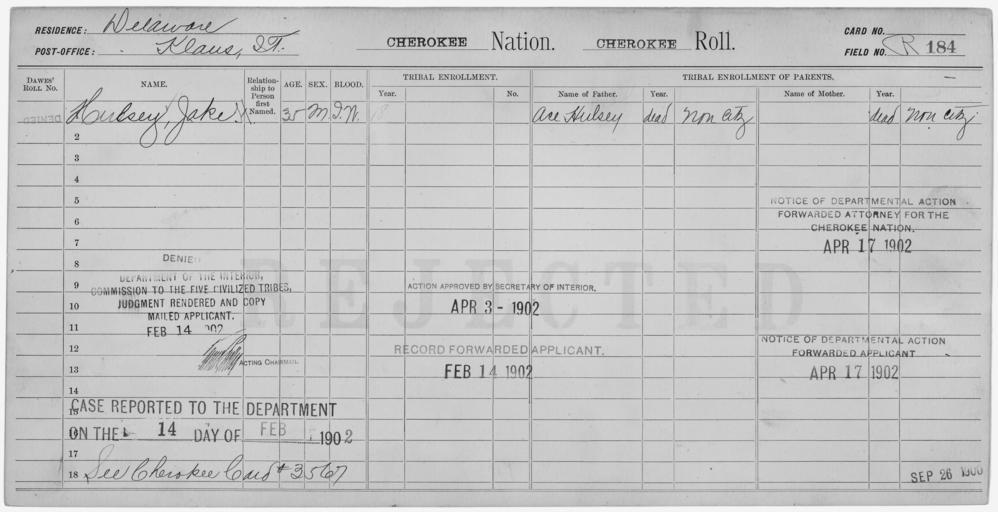 RESIDENCE: Delaware
POST-OFFICE: Klaus, I.T.
CHEROKEE Nation. CHEROKEE Roll.
CARD NO.
FIELD NO. R 184
DAWES' ROLL NO. NAME. Relationship to Person first Named. AGE. SEX. BLOOD. TRIBAL ENROLLMENT. TRIBAL ENROLLMENT OF PARENTS.
Year. No. Name of Father. Year. Name of Mother. Year.
DENIED Hulsey, Jake 35 M. I.W. Ace Hulsey dead Non Citz dead Non Citz
2
3
4
5 NOTICE OF DEPARTMENTAL ACTION
6 FORWARDED ATTORNEY FOR THE
CHEROKEE NATION.
7 APR 17 1902
8 DENIED
REJECTED
DEPARTMENT OF THE INTERIOR,
9 COMMISSION TO THE FIVE CIVILIZED TRIBES, ACTION APPROVED BY SECRETARY OF INTERIOR.
10 JUDGMENT RENDERED AND COPY APR 3 - 1902
MAILED APPLICANT.
11 FEB 14 1902
12 RECORD FORWARDED APPLICANT. NOTICE OF DEPARTMENTAL ACTION
FORWARDED APPLICANT
ACTING CHAIRMAN.
13 FEB 14 1902 APR 17 1902
14
15 CASE REPORTED TO THE DEPARTMENT
16 ON THE 14 DAY OF FEB 1902
17
18 See Cherokee Card #3567 SEP 26 1900